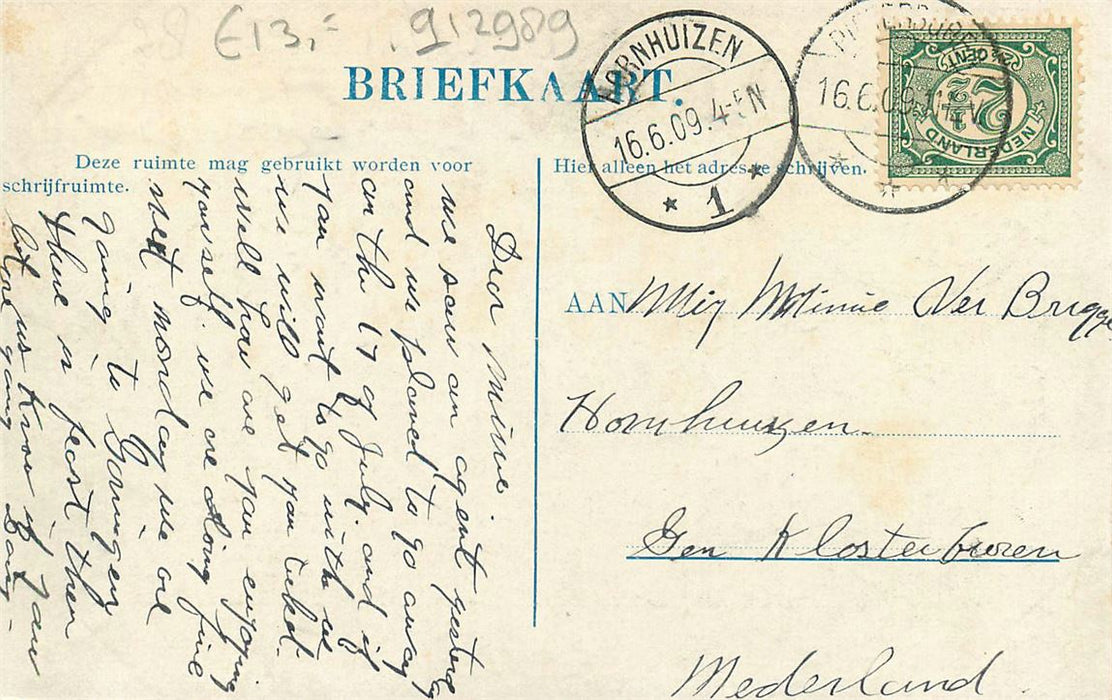 €13,- 912989
BRIEFKAART.
Deze ruimte mag gebruikt worden voor
schrijfruimte.
Dear Minnie.
we saw an agent yesterday
and we planed to go away
on the 17 of July. and if
you want to go with us
we will get you ticket.
well how are you enjoying
yourself. we are doing fine
next monday we are
going to Groningen
there is feast then
let us know if you
are going
Hier alleen het adres te schrijven.
AAN Mej Minnie Ver Brugge
Hornhuizen.
Gem Kloosterburen
Nederland.
HORNHUIZEN
16.6.09.4-5N
1
PIETERBUREN
16.6.09.
NEDERLAND
2½
CENT